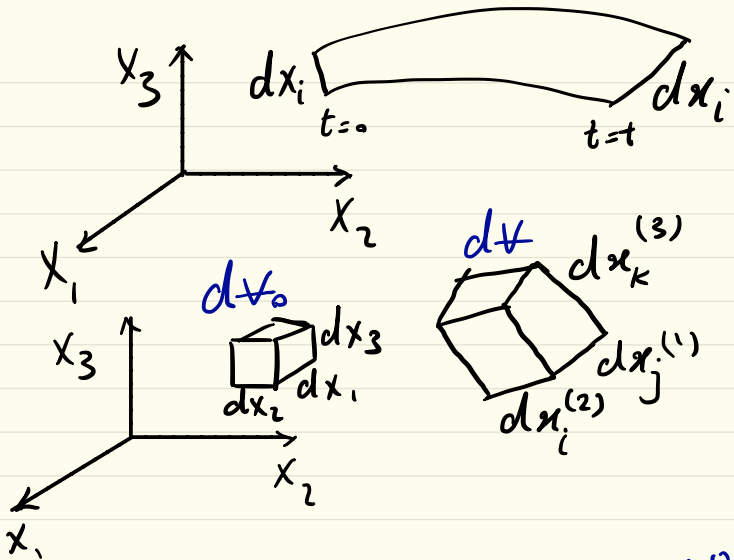 X₃
dxᵢ
dxᵢ
t=0
t=t
X₂
X₁
dV₀
dV
dxₖ⁽³⁾
X₃
dx₃
dx₁
dx₂
dxⱼ⁽¹⁾
dxᵢ⁽²⁾
X₂
X₁